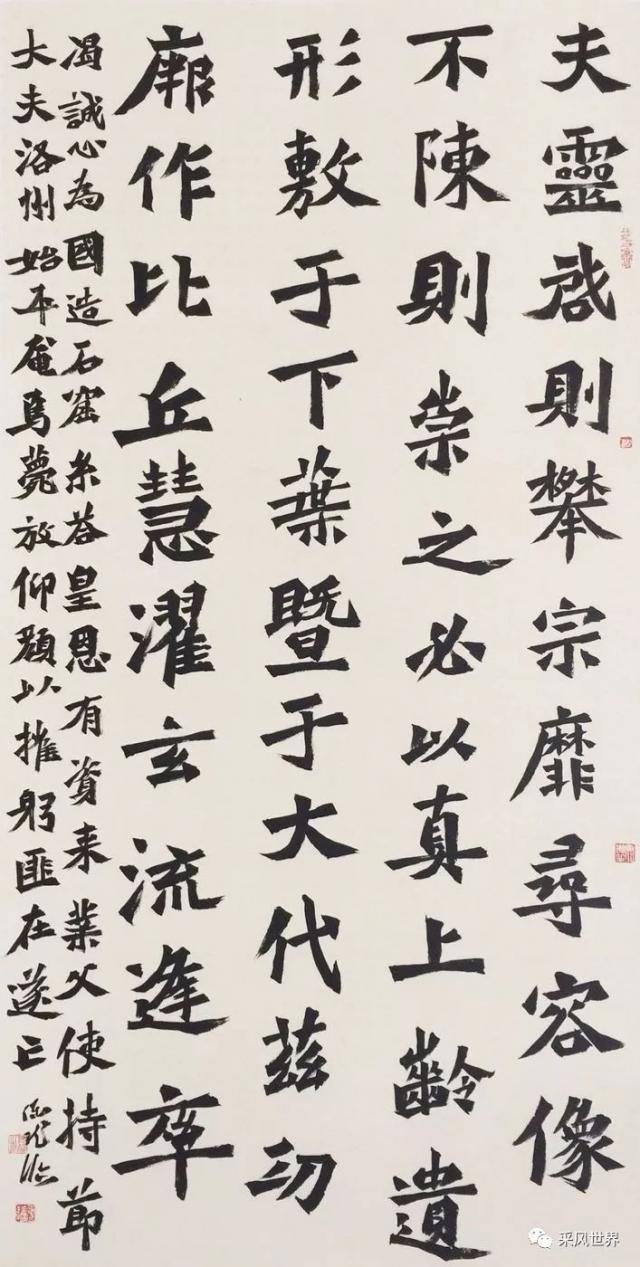 夫靈啟則攀宗靡尋容像
不陳則崇之必以真上齡遺
形敷于下葉暨于大代茲功
厥作比丘慧濯玄流逢率
渴誠心為國造石窟糸荅皇恩有資来業父使持節
大夫洛州始平奄焉薨放仰顏以摧躬匪在遂亡
臨
采风世界